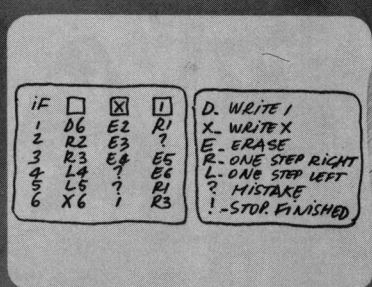 iF □ X 1
1 D6 E2 R1
2 R2 E3 ?
3 R3 E4 E5
4 L4 ? E6
5 L5 ? R1
6 X6 ! R3
D_ WRITE 1
X_ WRITE X
E_ ERASE
R- ONE STEP RIGHT
L- ONE STEP LEFT
? MISTAKE
! -STOP. FINISHED